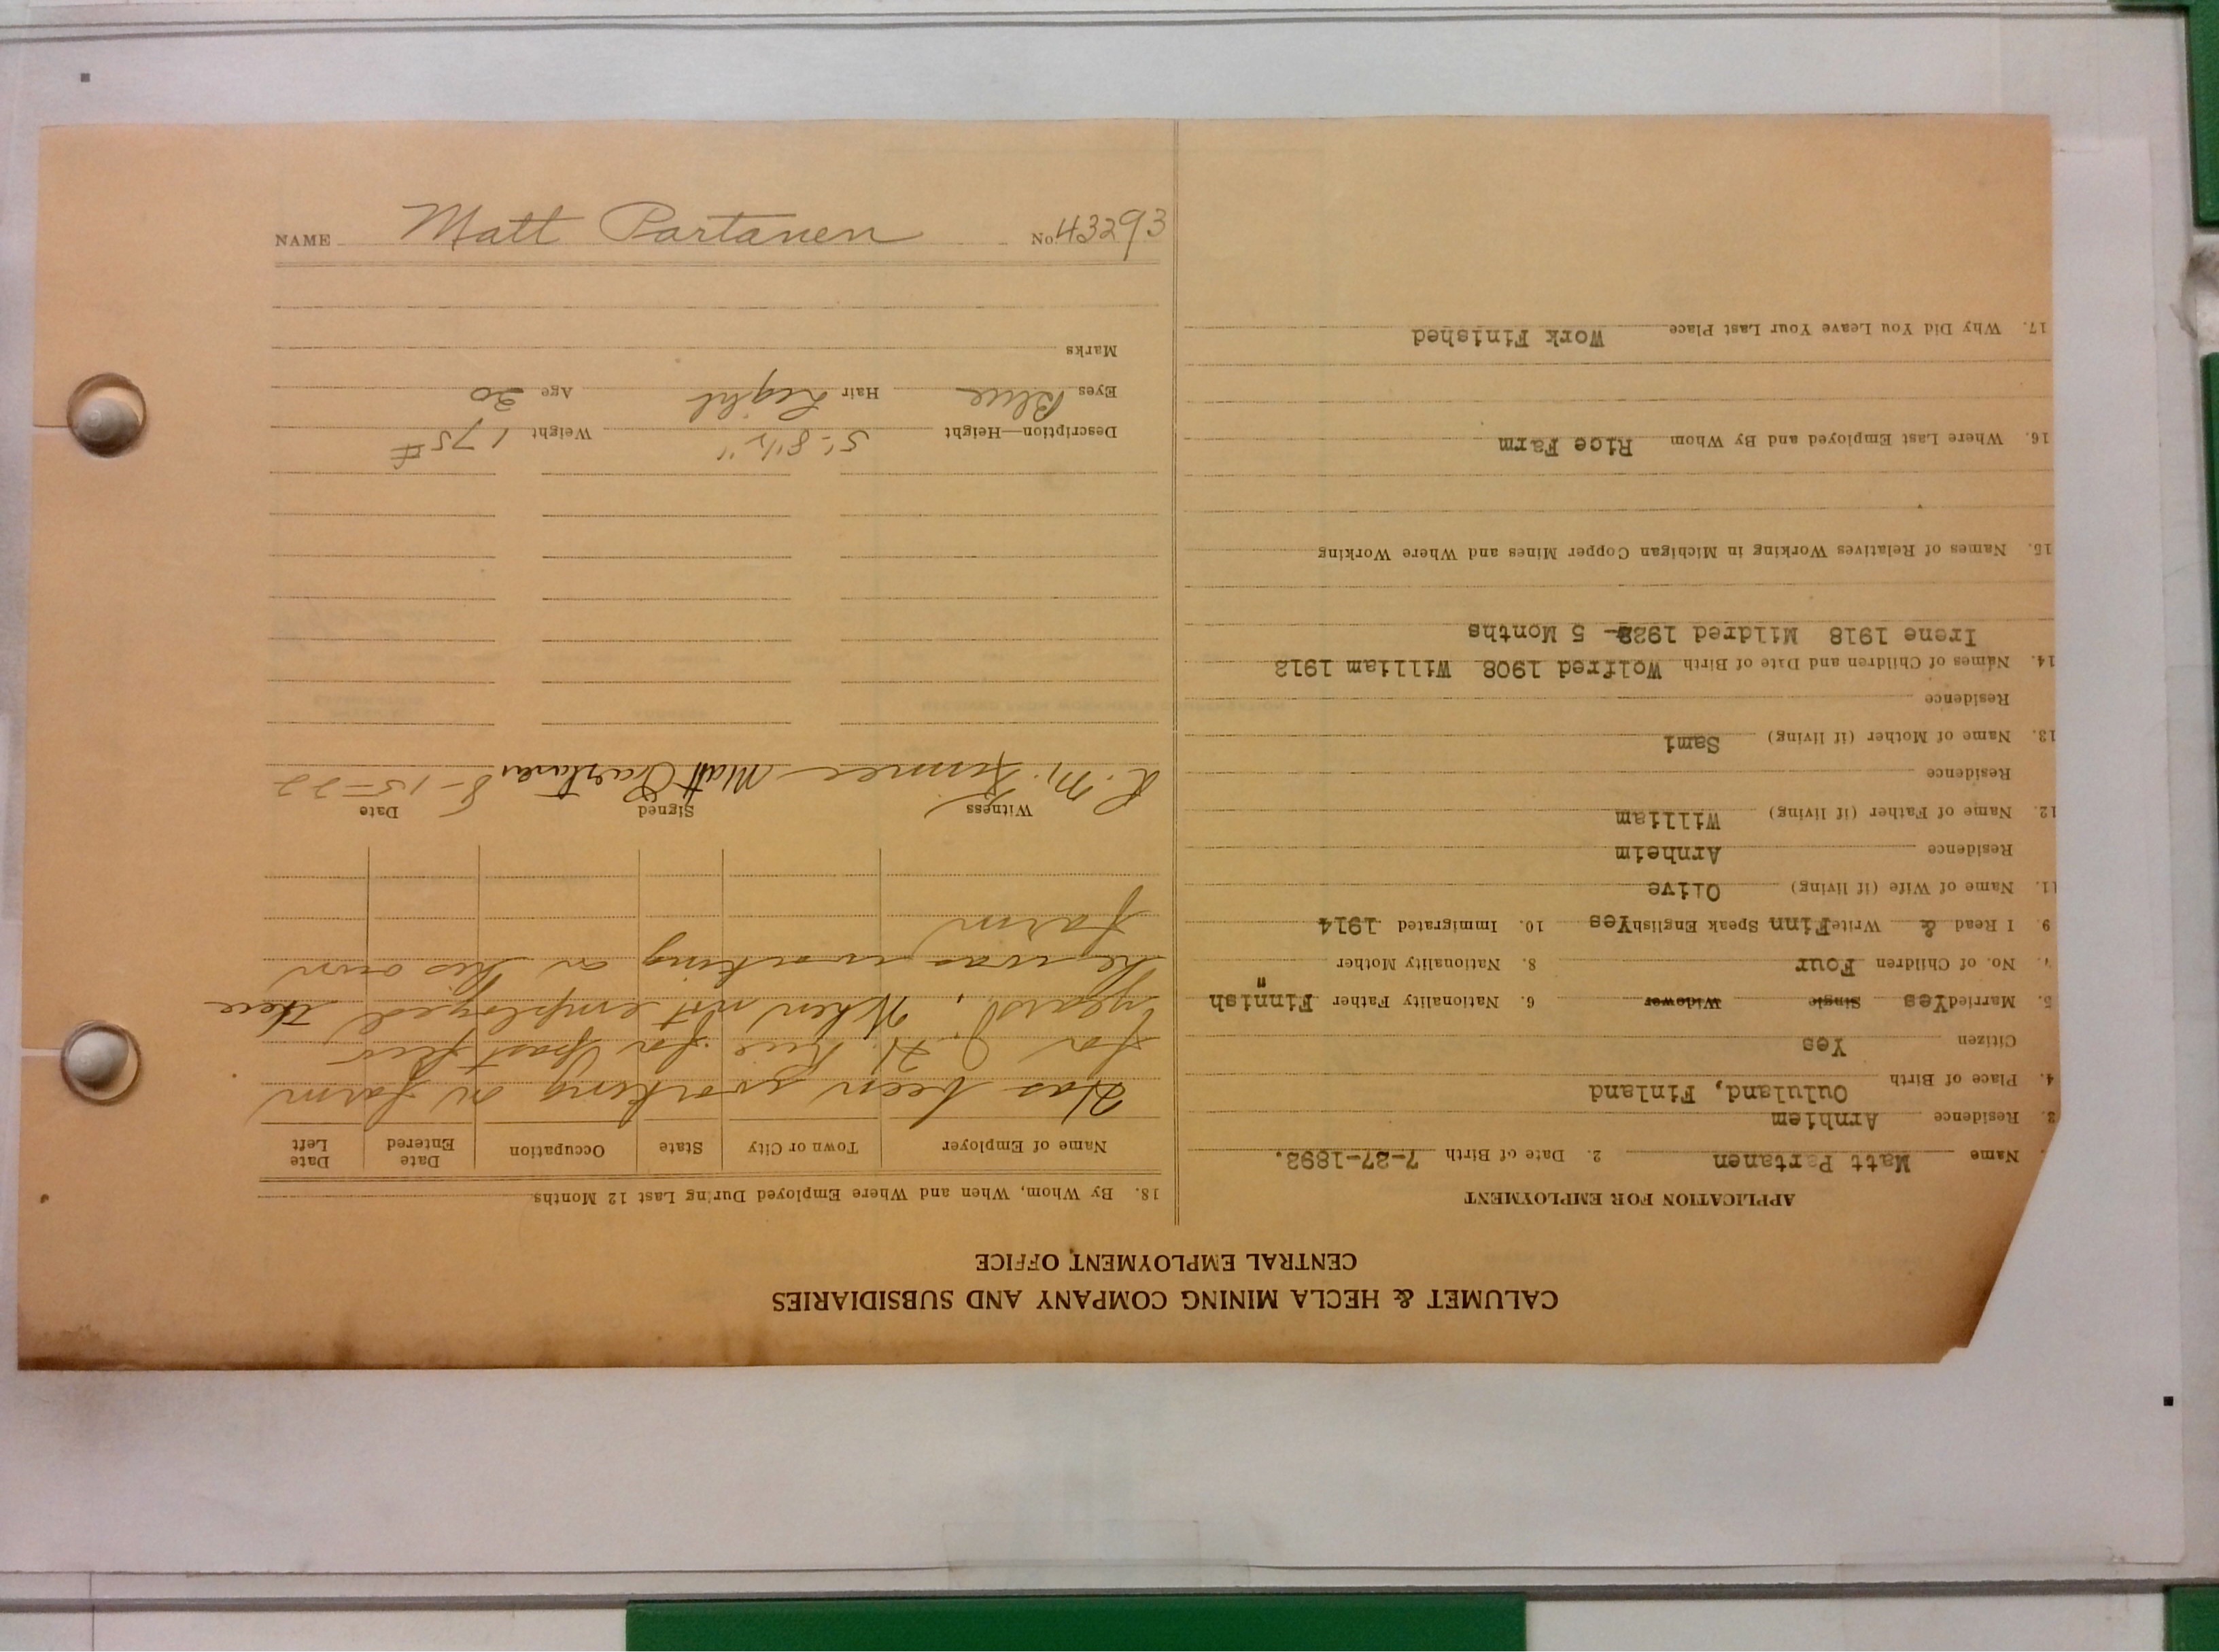 NAME Matt Partanen No 43293
CALUMET & HECLA MINING COMPANY AND SUBSIDIARIES
CENTRAL EMPLOYMENT OFFICE
APPLICATION FOR EMPLOYMENT
Name Matt Partanen 2. Date of Birth 7-27-1892.
3. Residence Arnhiem
4. Place of Birth Oululand, Finland
Citizen Yes
5. Married Yes Single Widower 6. Nationality Father Finnish
7. No. of Children Four 8. Nationality Mother "
9. I Read & Write Finn Speak English Yes 10. Immigrated 1914
11. Name of Wife (if living) Olive
Residence Arnheim
12. Name of Father (if living) William
Residence
13. Name of Mother (if living) Sami
Residence
14. Names of Children and Date of Birth Wolfred 1908 William 1912
Irene 1918 Mildred 1922- 5 Months
15. Names of Relatives Working in Michigan Copper Mines and Where Working
16. Where Last Employed and By Whom Rice Farm
17. Why Did You Leave Your Last Place Work Finished
18. By Whom, When and Where Employed During Last 12 Months
Name of Employer Town or City State Occupation Date Entered Date Left
Has been working on farm
for J. H. Rice for past few
years. When not employed there
he was working on his own
farm
Witness Signed Date
R. M. Matt Partanen 8-15-22
Description—Height 5'-8½" Weight 175#
Eyes Blue Hair Light Age 30
Marks